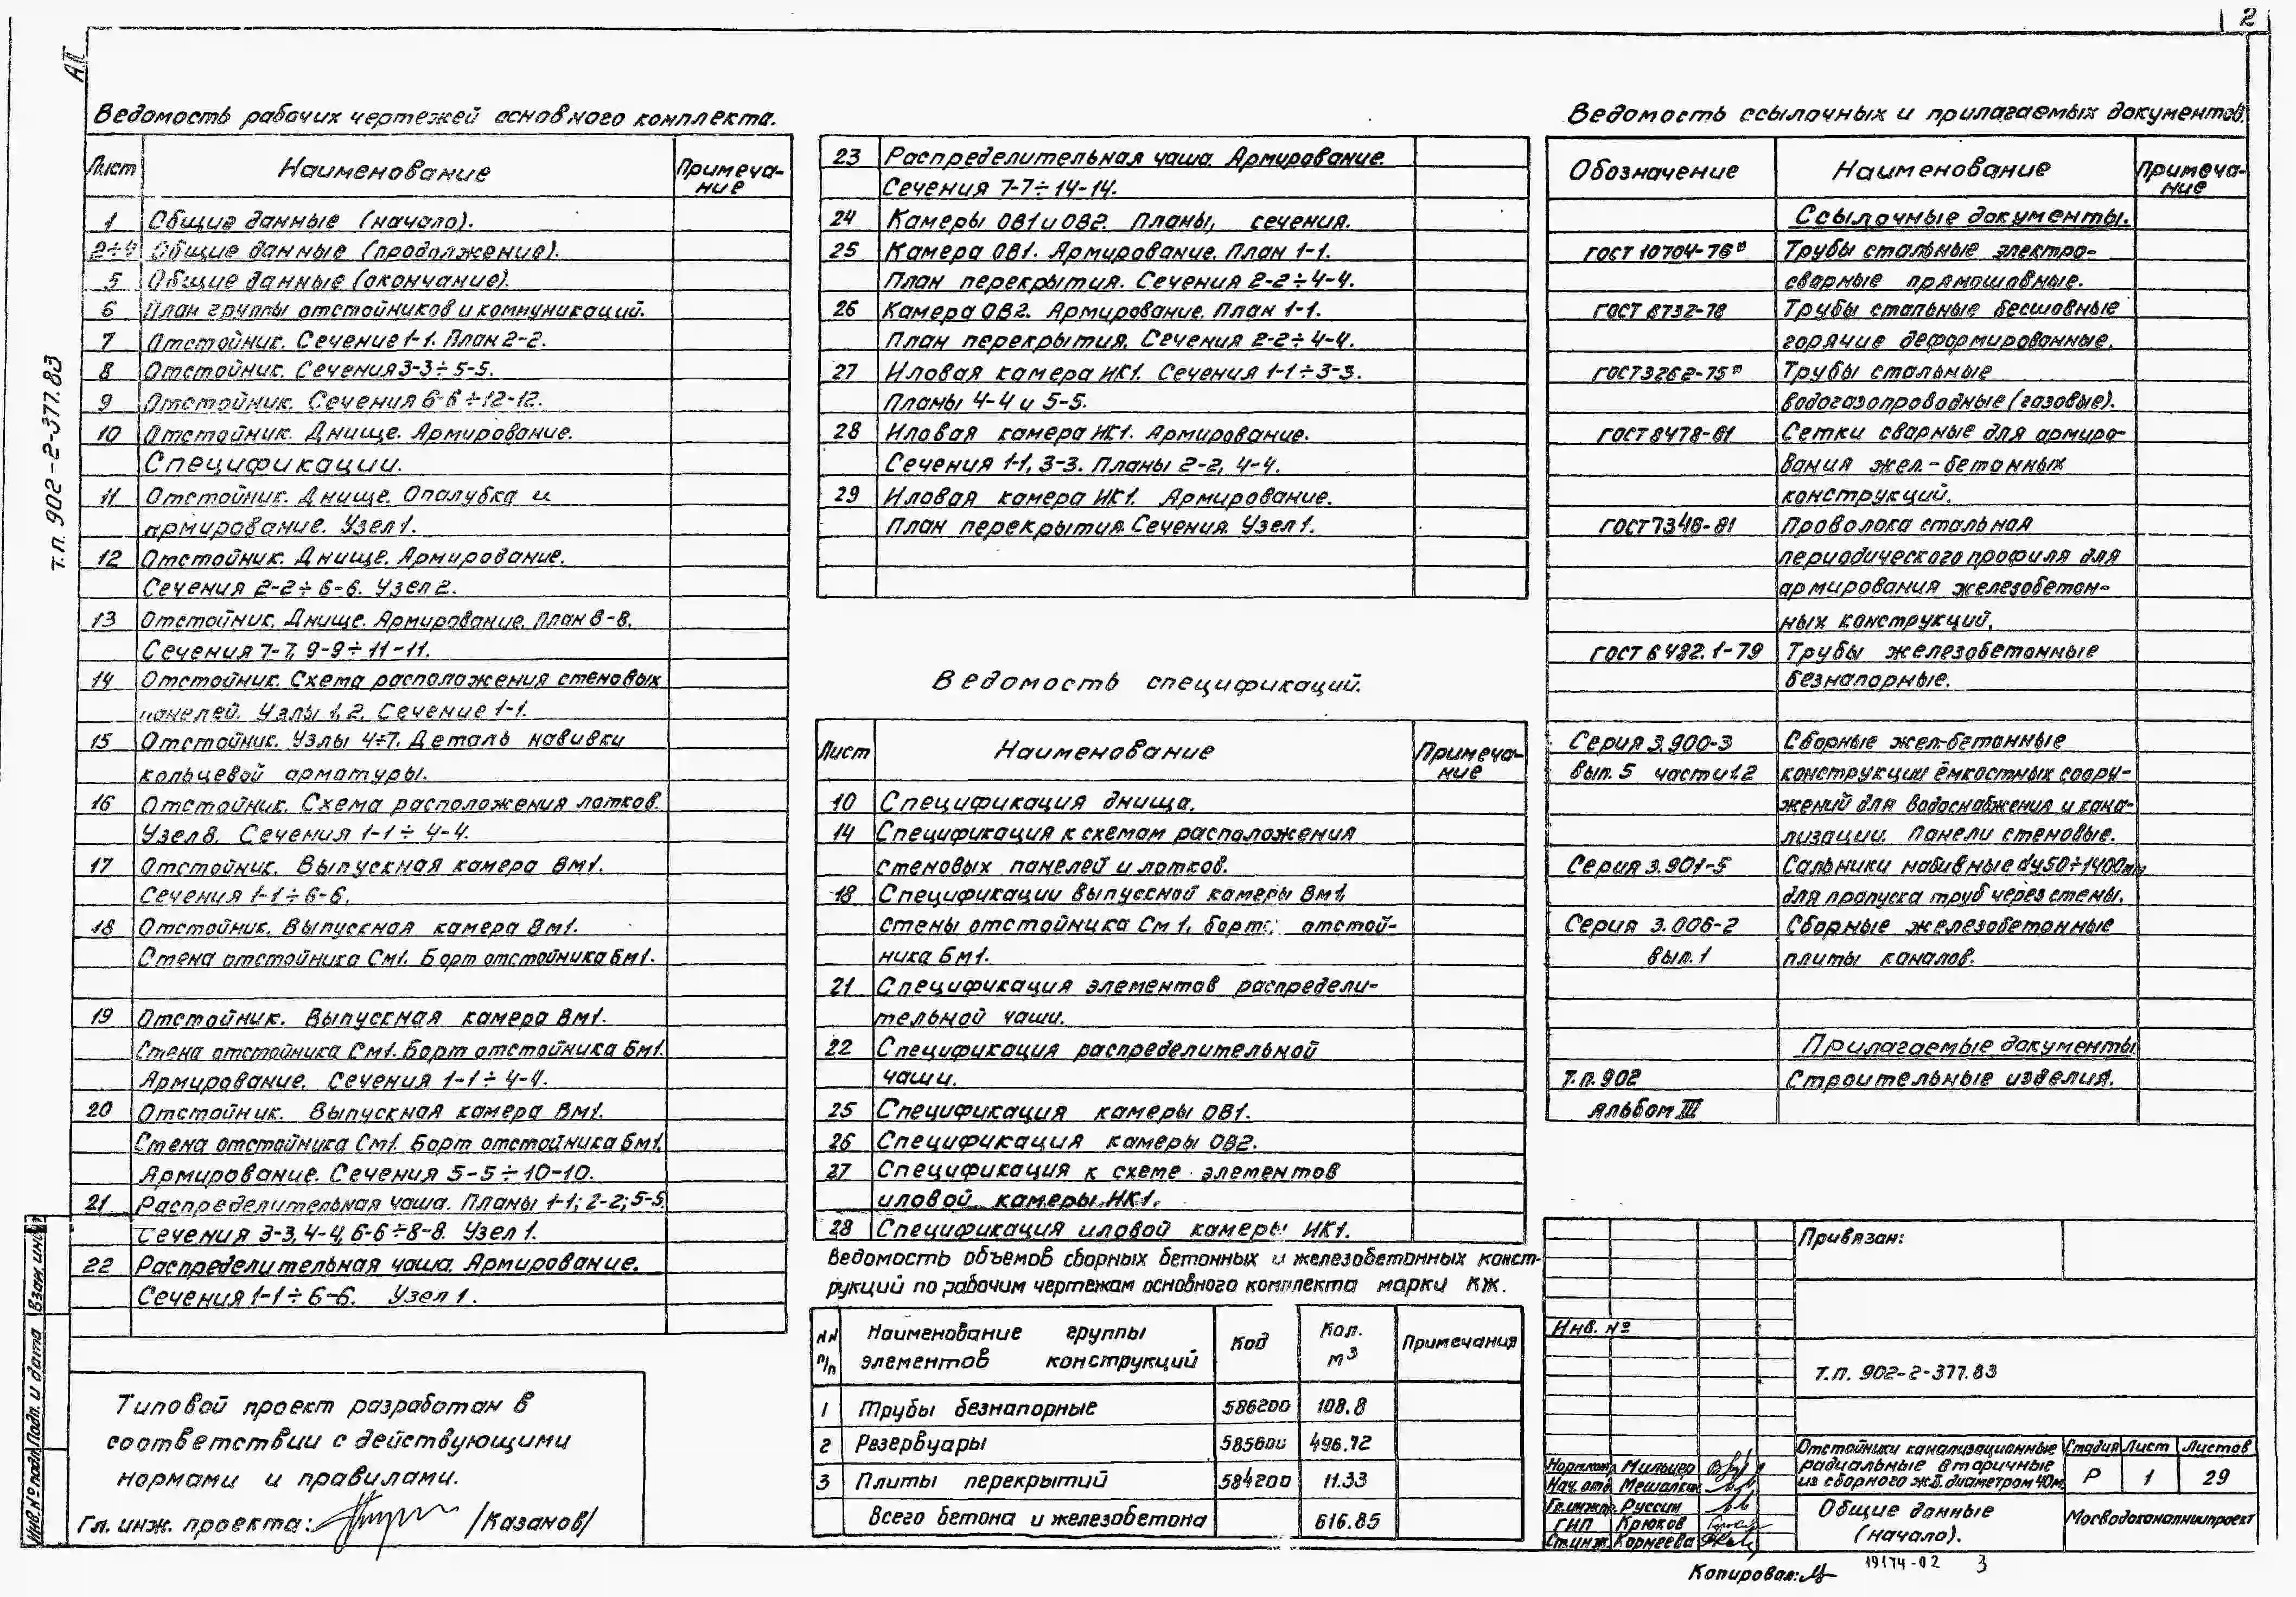 2
АII
т.п. 902-2-377.83
Ведомость рабочих чертежей основного комплекта.
Лист Наименование Примеча-
ние
1 Общие данные (начало).
2÷4 Общие данные (продолжение).
5 Общие данные (окончание).
6 План группы отстойников и коммуникаций.
7 Отстойник. Сечение 1-1. План 2-2.
8 Отстойник. Сечения 3-3÷5-5.
9 Отстойник. Сечения 6-6÷12-12.
10 Отстойник. Днище. Армирование.
Спецификации.
11 Отстойник. Днище. Опалубка и
армирование. Узел 1.
12 Отстойник. Днище. Армирование.
Сечения 2-2÷6-6. Узел 2.
13 Отстойник. Днище. Армирование. План 8-8.
Сечения 7-7, 9-9÷11-11.
14 Отстойник. Схема расположения стеновых
панелей. Узлы 1,2. Сечение 1-1.
15 Отстойник. Узлы 4÷7. Деталь навивки
кольцевой арматуры.
16 Отстойник. Схема расположения лотков.
Узел 8. Сечения 1-1÷4-4.
17 Отстойник. Выпускная камера Вм1.
Сечения 1-1÷6-6.
18 Отстойник. Выпускная камера Вм1.
Стена отстойника См1. Борт отстойника Бм1.
19 Отстойник. Выпускная камера Вм1.
Стена отстойника См1. Борт отстойника Бм1.
Армирование. Сечения 1-1÷4-4.
20 Отстойник. Выпускная камера Вм1.
Стена отстойника См1. Борт отстойника Бм1.
Армирование. Сечения 5-5÷10-10.
21 Распределительная чаша. Планы 1-1; 2-2; 5-5.
Сечения 3-3, 4-4, 6-6÷8-8. Узел 1.
22 Распределительная чаша. Армирование.
Сечения 1-1÷6-6. Узел 1.
Типовой проект разработан в
соответствии с действующими
нормами и правилами.
Гл. инж. проекта: /Казанов/
Инв. № подл. Подп. и дата Взам. инв. №
23 Распределительная чаша. Армирование.
Сечения 7-7÷14-14.
24 Камеры ОВ1 и ОВ2. Планы, сечения.
25 Камера ОВ1. Армирование. План 1-1.
План перекрытия. Сечения 2-2÷4-4.
26 Камера ОВ2. Армирование. План 1-1.
План перекрытия. Сечения 2-2÷4-4.
27 Иловая камера ИК1. Сечения 1-1÷3-3.
Планы 4-4 и 5-5.
28 Иловая камера ИК1. Армирование.
Сечения 1-1, 3-3. Планы 2-2, 4-4.
29 Иловая камера ИК1. Армирование.
План перекрытия. Сечения. Узел 1.
Ведомость спецификаций.
Лист Наименование Примеча-
ние
10 Спецификация днища.
14 Спецификация к схемам расположения
стеновых панелей и лотков.
18 Спецификации выпускной камеры Вм1,
стены отстойника См1, борта отстой-
ника Бм1.
21 Спецификация элементов распредели-
тельной чаши.
22 Спецификация распределительной
чаши.
25 Спецификация камеры ОВ1.
26 Спецификация камеры ОВ2.
27 Спецификация к схеме элементов
иловой камеры ИК1.
28 Спецификация иловой камеры ИК1.
Ведомость объемов сборных бетонных и железобетонных конст-
рукций по рабочим чертежам основного комплекта марки КЖ.
NN п/п Наименование группы элементов конструкций Код Кол. м3 Примечания
1 Трубы безнапорные 586200 108.8
2 Резервуары 585600 496.72
3 Плиты перекрытий 584200 11.33
Всего бетона и железобетона 616.85
Ведомость ссылочных и прилагаемых документов.
Обозначение Наименование Примеча-
ние
Ссылочные документы.
ГОСТ 10704-76* Трубы стальные электро-
сварные прямошовные.
ГОСТ 8732-78 Трубы стальные бесшовные
горячие деформированные.
ГОСТ 3262-75* Трубы стальные
водогазопроводные (газовые).
ГОСТ 8478-81 Сетки сварные для армиро-
вания жел.-бетонных
конструкций.
ГОСТ 7348-81 Проволока стальная
периодического профиля для
армирования железобетон-
ных конструкций.
ГОСТ 6482.1-79 Трубы железобетонные
безнапорные.
Серия 3.900-3 Сборные жел-бетонные
вып. 5 части 1.2 конструкции ёмкостных соору-
жений для водоснабжения и кана-
лизации. Панели стеновые.
Серия 3.901-5 Сальники набивные dу50÷1400мм
для пропуска труб через стены.
Серия 3.006-2 Сборные железобетонные
вып. 1 плиты каналов.
Прилагаемые документы
Т.п. 902 Строительные изделия.
альбом III
Привязан:
Инв. №
Т.П. 902-2-377.83
Отстойники канализационные
радиальные вторичные
из сборного ж.б. диаметром 40м.
Стадия Лист Листов
Р 1 29
Норм.кон. Мильнер
Нач. отд. Мешалкин
Гл.инж.пр. Руссин
ГИП Крюков
Ст.инж. Корнеева
Общие данные
(начало).
Мосводоканалниипроект
Копировал:
19174-02 3